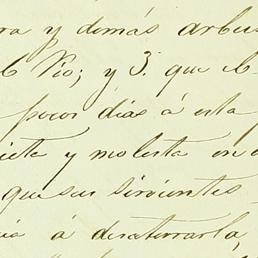 ra y demás arbus
el Rio; y 3º. que el
pocos días á esta
iete y molesta en
que sus sirvientes
ia á desatierrarla,